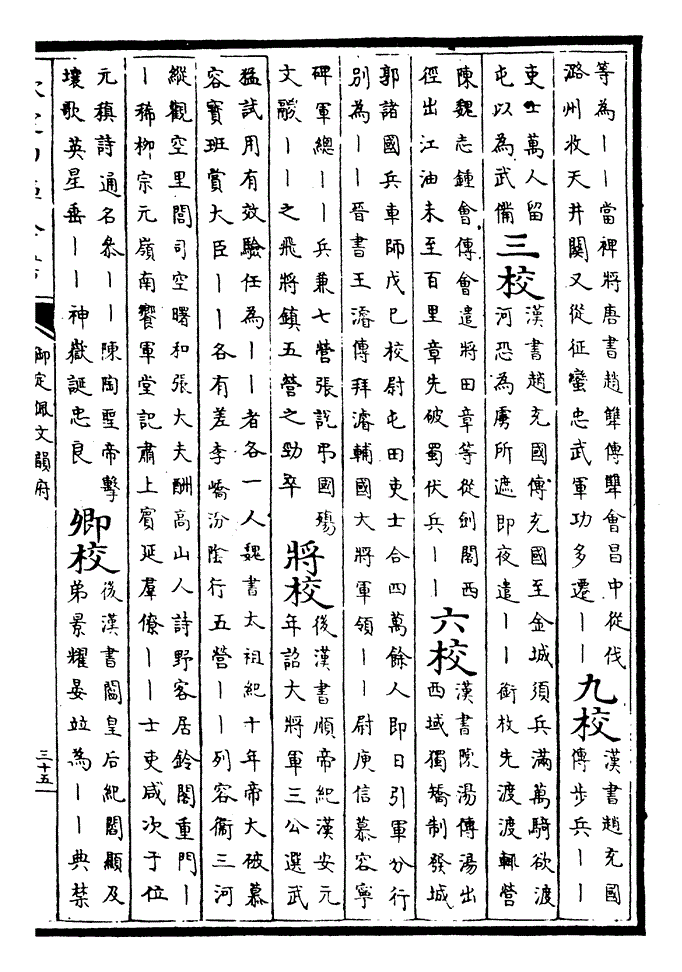 等為丨丨當裨將唐書趙犨傳犨會昌中從伐
潞州收天井關又從征蠻忠武軍功多遷丨丨
九校
漢書趙充國
傳步兵丨丨
吏士萬人留
屯以為武備
三校
漢書趙充國傳充國至金城須兵滿萬騎欲渡
河恐為虜所遮即夜遣丨丨銜枚先渡渡輒營
陳魏志鍾會傳會遣將田章等從劍閣西
徑出江油未至百里章先破蜀伏兵丨丨
六校
漢書陳湯傳湯出
西域獨矯制發城
郭諸國兵車師戊巳校尉屯田吏士合四萬餘人即日引軍分行
別為丨丨晉書王濬傳拜濬輔國大將軍領丨丨尉庾信慕容寧
碑軍總丨丨兵兼七營張說弔國殤
文丨丨之飛將鎮五營之勁卒
將校
後漢書順帝紀漢安元
年詔大將軍三公選武
猛試用有效驗任為丨丨者各一人魏書太祖紀十年帝大破慕
容寶班賞大臣丨丨各有差李嶠汾陰行五營丨丨列容衞三河
縱觀空里閭司空曙和張大夫酬高山人詩野客居鈴閣重門丨
丨稀柳宗元嶺南饗軍堂記肅上賓延羣僚丨丨士吏咸次于位
元稹詩通名參丨丨陳陶聖帝擊
壤歌英星垂丨丨神嶽誕忠良
卿校
後漢書閻皇后紀閻顯及
弟景耀晏竝為丨丨典禁
御定佩文韻府
三十五